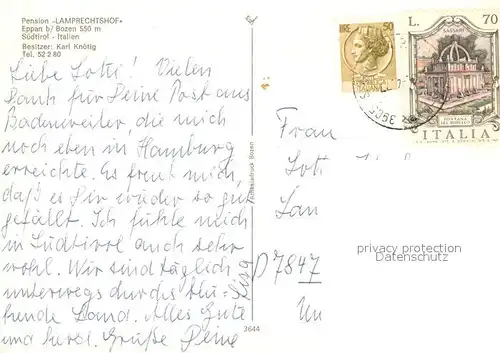 Pension »LAMPRECHTSHOF«
Eppan b/ Bozen 550 m
Südtirol - Italien
Besitzer: Karl Knötig
Tel. 52 2 80
Liebe Lotti! Vielen
Dank für Deine Post aus
Badenweiler, die mich
noch eben in Hamburg
erreichte. Es freut mich,
daß es Dir wieder so gut
gefällt. Ich fühle mich
in Südtirol auch sehr
wohl. Wir sind täglich
unterwegs durchs blü-
hende Land. Alles Gute
und herzl. Grüße Deine
Lisa
3644
LIRE 50
L. 70
SASSARI
FONTANA DEL ROSELLO
ITALIA
Frau
Lott
Lan
D 7847
privacy protection
Datenschutz